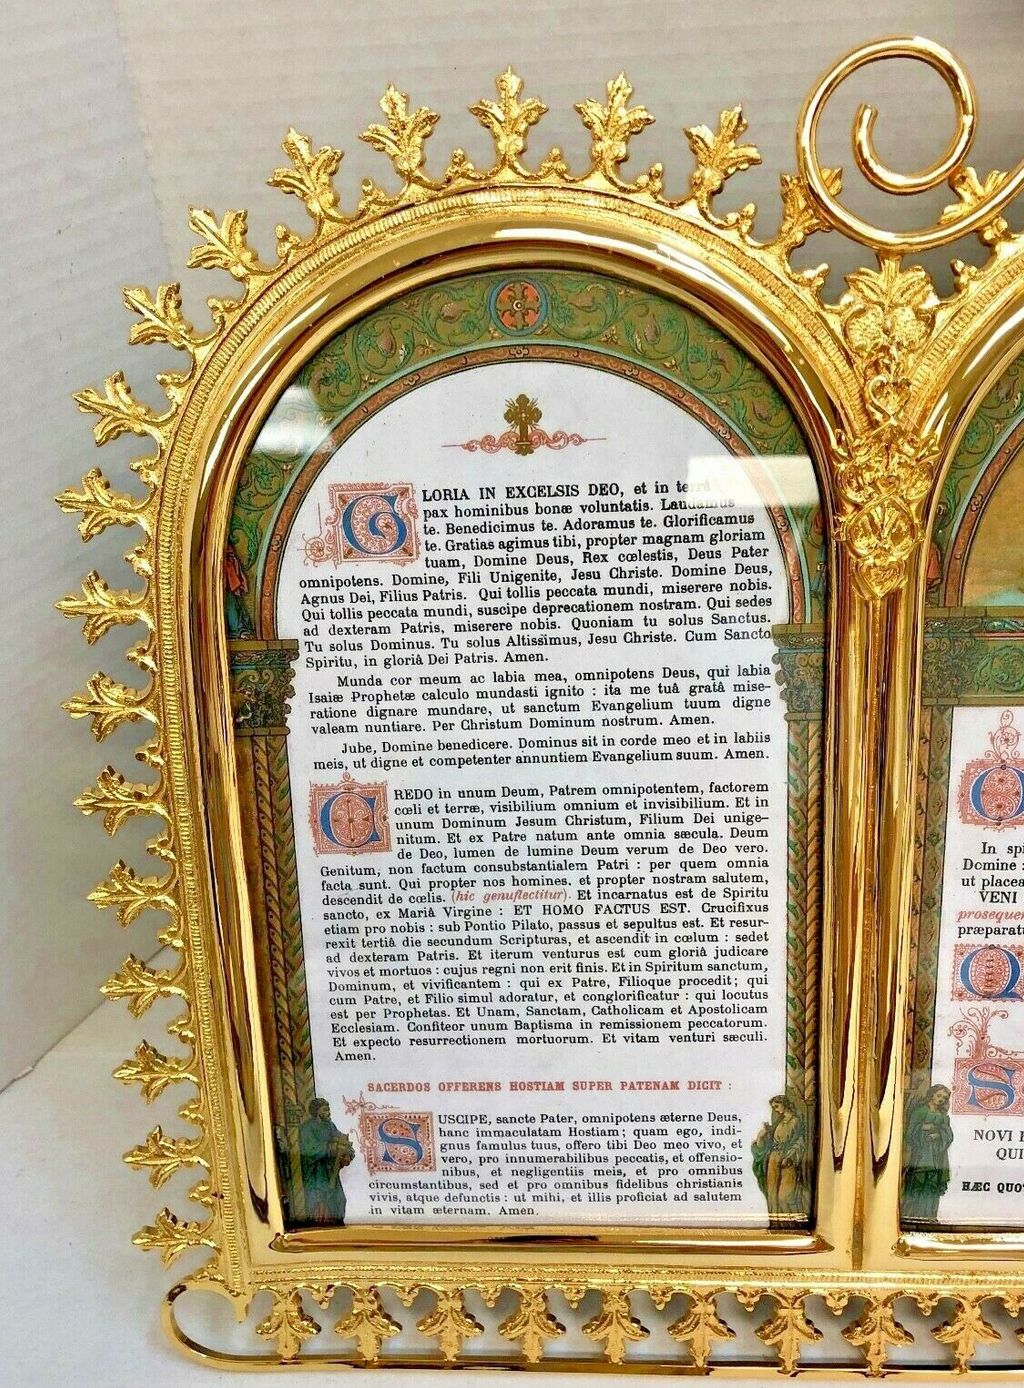 GLORIA IN EXCELSIS DEO, et in terrâ
pax hominibus bonæ voluntatis. Laudamus
te. Benedicimus te. Adoramus te. Glorificamus
te. Gratias agimus tibi, propter magnam gloriam
tuam, Domine Deus, Rex cœlestis, Deus Pater
omnipotens. Domine, Fili Unigenite, Jesu Christe. Domine Deus,
Agnus Dei, Filius Patris. Qui tollis peccata mundi, miserere nobis.
Qui tollis peccata mundi, suscipe deprecationem nostram. Qui sedes
ad dexteram Patris, miserere nobis. Quoniam tu solus Sanctus.
Tu solus Dominus. Tu solus Altissimus, Jesu Christe. Cum Sancto
Spiritu, in gloriâ Dei Patris. Amen.
Munda cor meum ac labia mea, omnipotens Deus, qui labia
Isaiæ Prophetæ calculo mundasti ignito : ita me tuâ gratâ mise-
ratione dignare mundare, ut sanctum Evangelium tuum digne
valeam nuntiare. Per Christum Dominum nostrum. Amen.
Jube, Domine benedicere. Dominus sit in corde meo et in labiis
meis, ut digne et competenter annuntiem Evangelium suum. Amen.
CREDO in unum Deum, Patrem omnipotentem, factorem
cœli et terræ, visibilium omnium et invisibilium. Et in
unum Dominum Jesum Christum, Filium Dei unige-
nitum. Et ex Patre natum ante omnia sæcula. Deum
de Deo, lumen de lumine Deum verum de Deo vero.
Genitum, non factum consubstantialem Patri : per quem omnia
facta sunt. Qui propter nos homines, et propter nostram salutem,
descendit de cœlis. (hic genuflectitur). Et incarnatus est de Spiritu
sancto, ex Mariâ Virgine : ET HOMO FACTUS EST. Crucifixus
etiam pro nobis : sub Pontio Pilato, passus et sepultus est. Et resur-
rexit tertiâ die secundum Scripturas, et ascendit in cœlum : sedet
ad dexteram Patris. Et iterum venturus est cum gloriâ judicare
vivos et mortuos : cujus regni non erit finis. Et in Spiritum sanctum,
Dominum, et vivificantem : qui ex Patre, Filioque procedit ; qui
cum Patre, et Filio simul adoratur, et conglorificatur : qui locutus
est per Prophetas. Et Unam, Sanctam, Catholicam et Apostolicam
Ecclesiam. Confiteor unum Baptisma in remissionem peccatorum.
Et expecto resurrectionem mortuorum. Et vitam venturi sæculi.
Amen.
SACERDOS OFFERENS HOSTIAM SUPER PATENAM DICIT :
SUSCIPE, sancte Pater, omnipotens æterne Deus,
hanc immaculatam Hostiam ; quam ego, indi-
gnus famulus tuus, offero tibi Deo meo vivo, et
vero, pro innumerabilibus peccatis, et offensio-
nibus, et negligentiis meis, et pro omnibus
circumstantibus, sed et pro omnibus fidelibus christianis
vivis, atque defunctis : ut mihi, et illis proficiat ad salutem
in vitam æternam. Amen.
Q
In spi
Domine :
ut placea
VENI
prosequen
præparat
Q
S
NOVI
QUI
HÆC QUO